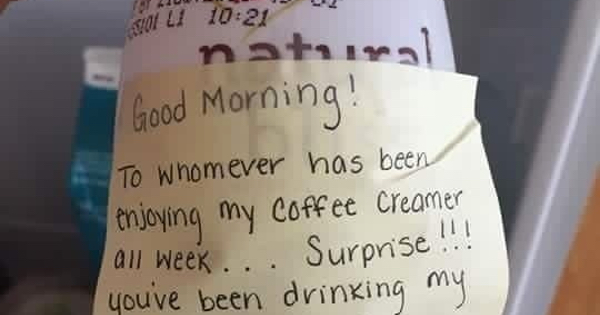 10:21
natural
Good Morning!
To whomever has been
enjoying my Coffee Creamer
all week . . . Surprise!!!
you've been drinking my